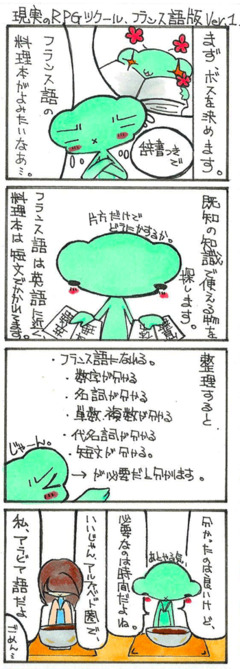 現実のRPGツクール、フランス語版 Ver.1
まず、ボスを決めます。
フランス語の
料理本がよみたいなあ…。
辞書つきで
既知の知識で使える事を
探します。
片方だけで
どうにかするか。
フランス語は英語に近く、
料理本は短文でかかれてます。
整理すると、
・フランス語になれる。
・数字が分かる
・名詞が分かる
・単数・複数が分かる
・代名詞が分かる
・短文が分かる。
じゃーん。
→が必要だと分かります。
分かったのは良いけど、
必要なのは時間だよね。
いいじゃん、アルファベット圏で、
私、アラビア語だよ